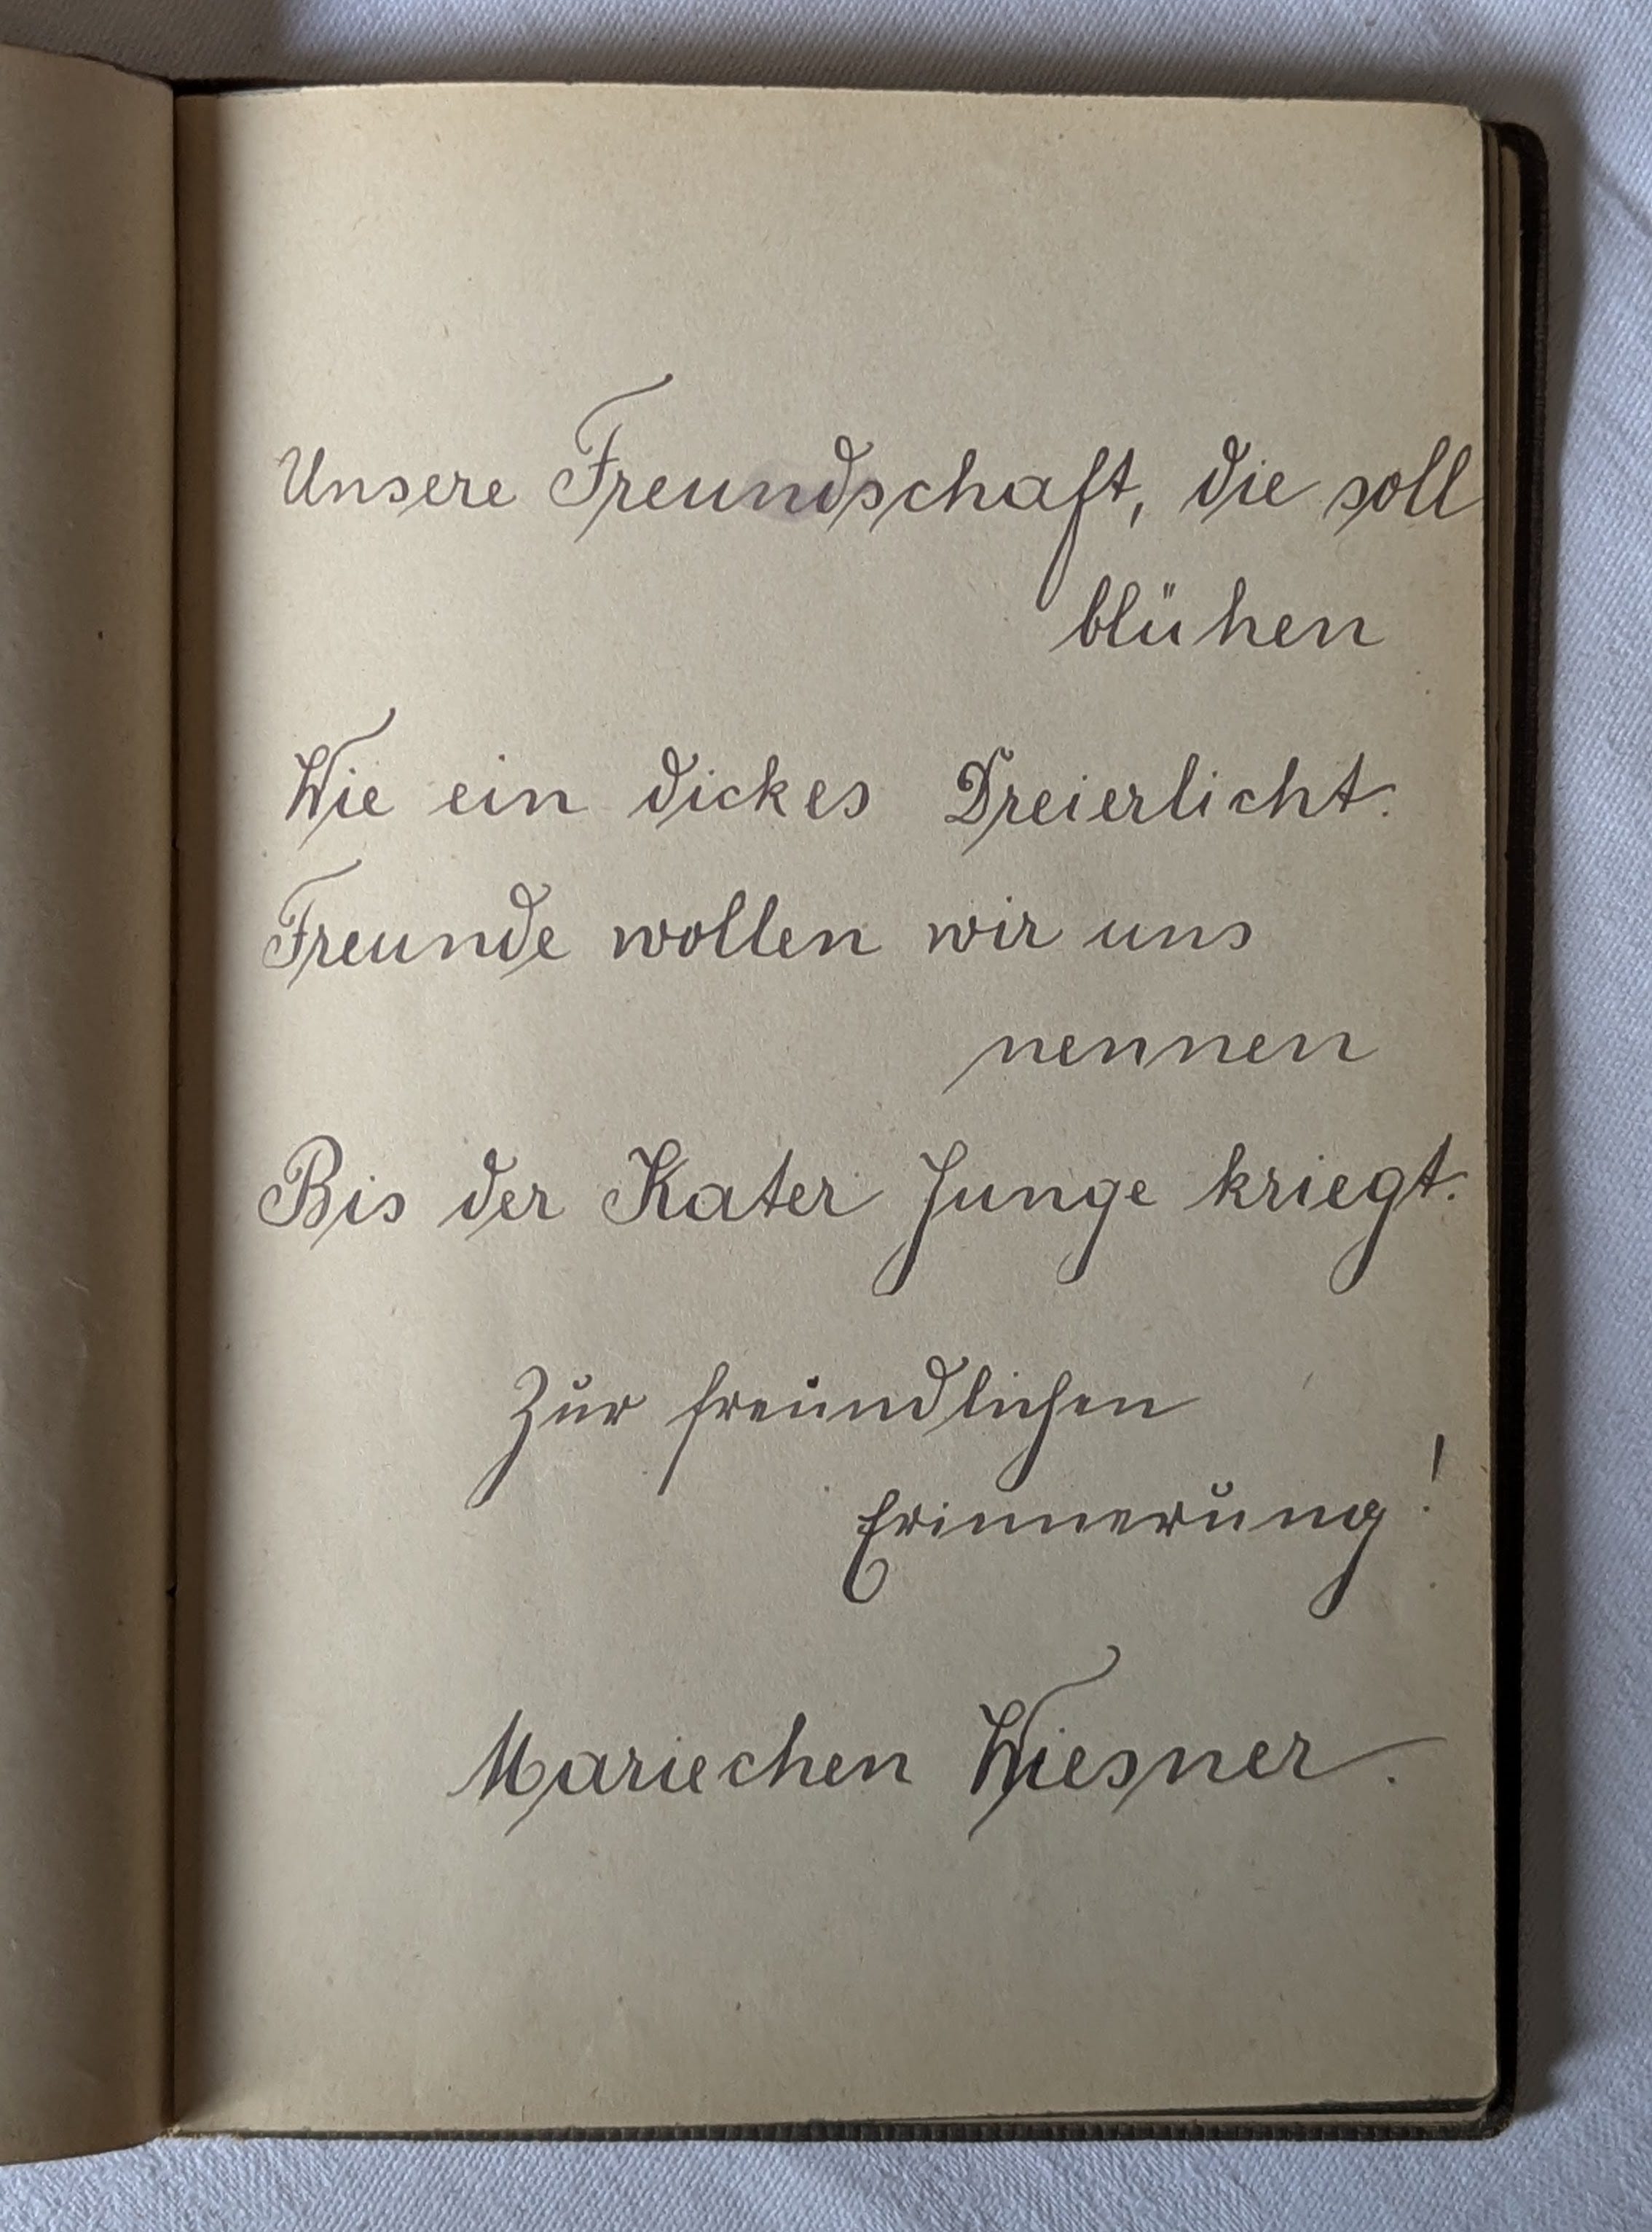 Unsere Freundschaft, die soll
blühen
Wie ein dickes Dreierlicht.
Freunde wollen wir uns
nennen
Bis der Kater Junge kriegt.
Zur freundlichen
Erinnerung!
Mariechen Wiesner.